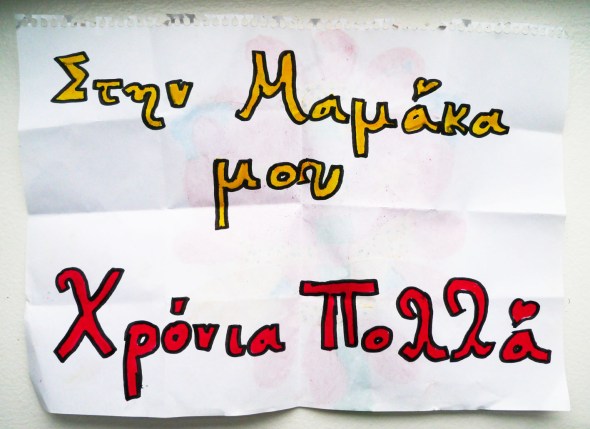 Στην Μαμάκα
μου
Χρόνια Πολλά